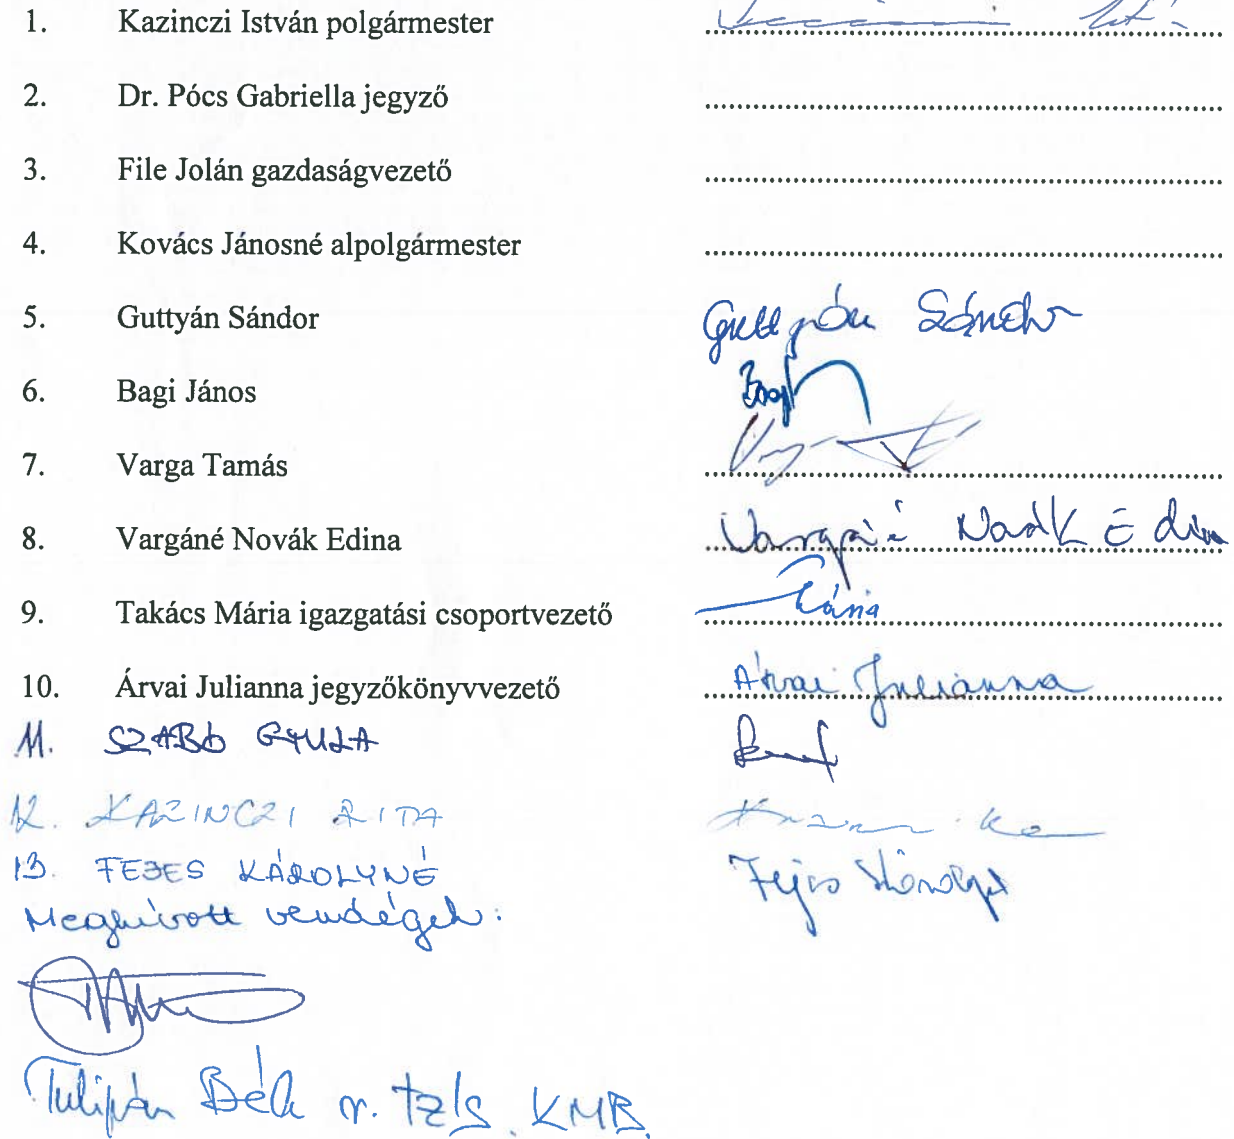 1. Kazinczi István polgármester
2. Dr. Pócs Gabriella jegyző
3. File Jolán gazdaságvezető
4. Kovács Jánosné alpolgármester
5. Guttyán Sándor Guttyán Sándor
6. Bagi János
7. Varga Tamás
8. Vargáné Novák Edina Vargáné Novák Edina
9. Takács Mária igazgatási csoportvezető
10. Árvai Julianna jegyzőkönyvvezető Árvai Julianna
11. SZABÓ GYULA
12. KAZINCZI RITA
13. FEJES KÁROLYNÉ Fejes Károlyné
Meghívott vendégek:
Tulipán Béla r. tzls. KMB.